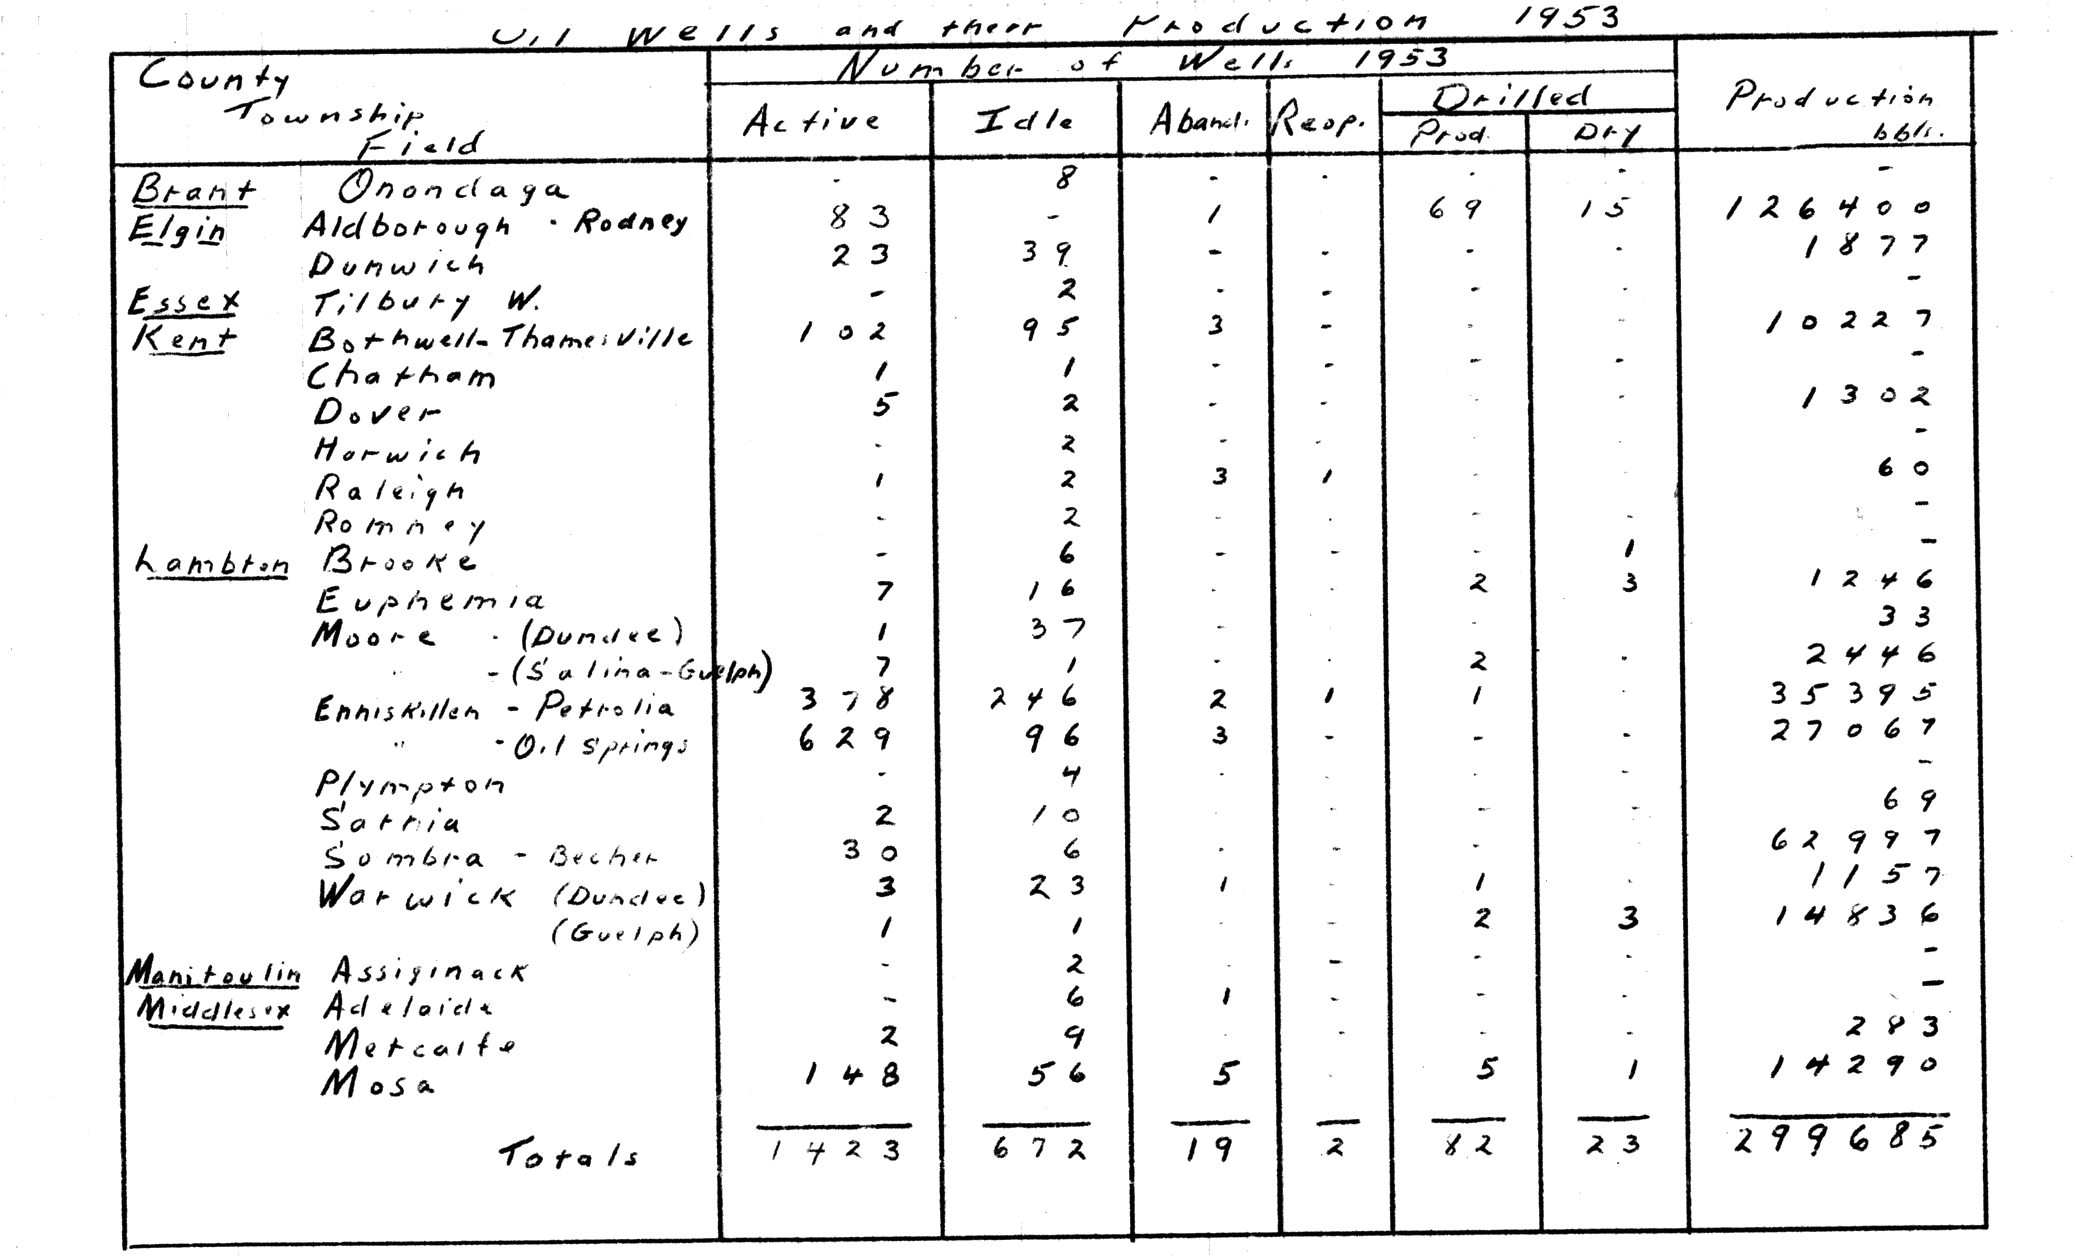 Oil Wells and their Production 1953
County Number of Wells 1953
Township Active Idle Aband. Reop. Drilled Production
Field Prod. Dry bbls.
Brant Onondaga - 8 - - - - -
Elgin Aldborough - Rodney 83 - 1 69 15 126400
Dunwich 23 39 - - - - 1877
Essex Tilbury W. - 2 - - - - -
Kent Bothwell-Thamesville 102 95 3 - - - 10227
Chatham 1 1 - - - - -
Dover 5 2 - - - - 1302
Horwich - 2 - - - - -
Raleigh 1 2 3 1 - - 60
Romney - 2 - - - - -
Lambton Brooke - 6 - - - 1 -
Euphemia 7 16 - - 2 3 1246
Moore - (Dundee) 1 37 - - - - 33
" - (Salina-Guelph) 7 1 - - 2 - 2446
Enniskillen - Petrolia 378 246 2 1 1 - 35395
" - Oil Springs 629 96 3 - - - 27067
Plympton - 4 - - - - -
Sarnia 2 10 - - - - 69
Sombra - Becher 30 6 - - - - 62997
Warwick (Dundee) 3 23 1 - 1 - 1157
(Guelph) 1 1 - - 2 3 14836
Manitoulin Assiginack - 2 - - - - -
Middlesex Adelaide - 6 1 - - - -
Metcalfe 2 9 - - - - 283
Mosa 148 56 5 - 5 1 14290
Totals 1423 672 19 2 82 23 299685